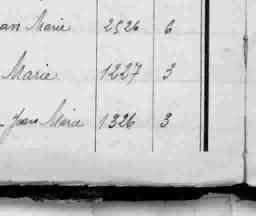 an Marie 2526 6
Marie 1227 3
Jean Marie 1326 3